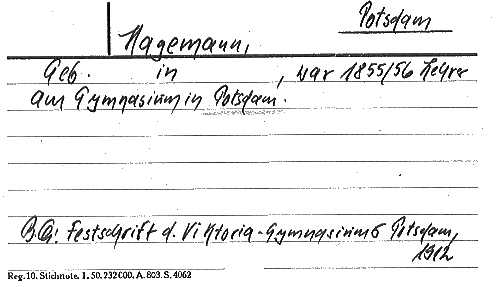 Potsdam
Hagemann,
Geb. in , war 1855/56 Lehrer
am Gymnasium in Potsdam.
B.G: Festschrift d. Viktoria-Gymnasiums Potsdam,
1912
Reg. 10. Stichnote. 1. 50. 232000. A. 803. S. 4062